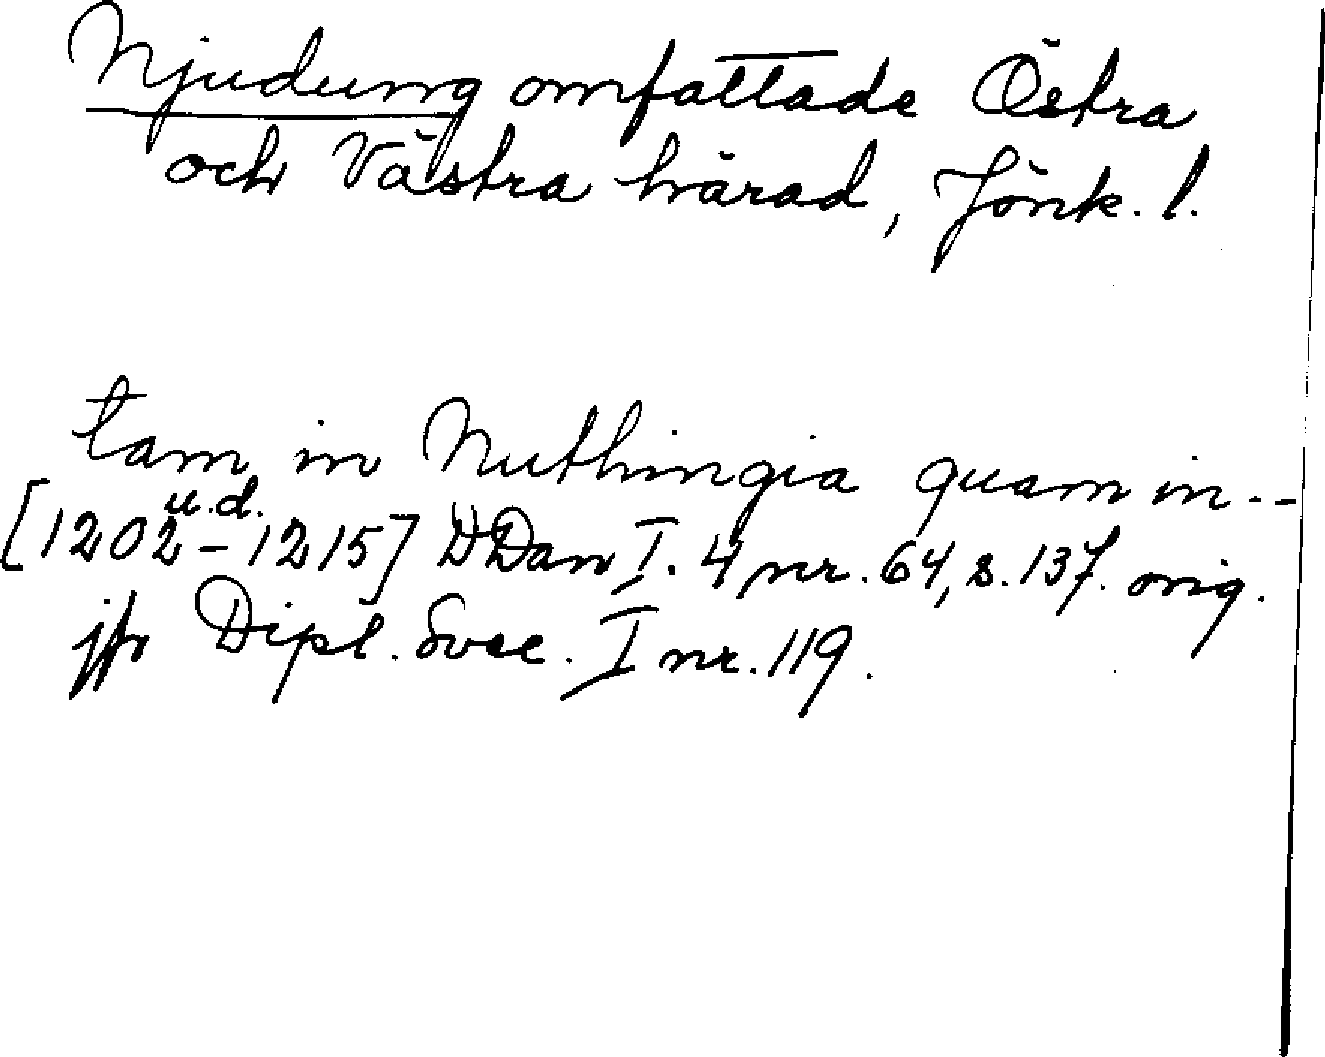 Njudung omfattade Östra
och Västra härad, Jönk. l.
tam in Nuthingia quam in --
u.d.
[1202-1215] DDan I. 4 nr. 64, s. 137. orig.
jfr Dipl. Svec. I nr. 119.